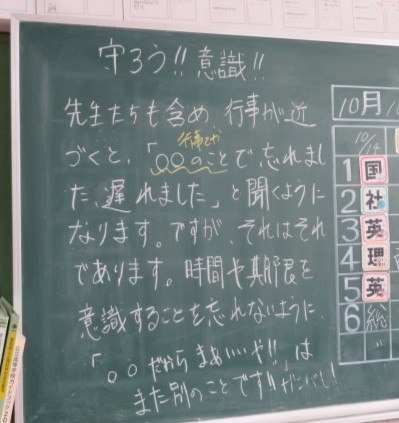 守ろう!! 意識!!
先生たちも含め、行事が近
行事とか
づくと、「○○のことで、忘れまし
た、遅れました」と聞くように
なります。ですが、それはそれ
であります。時間や期限を
意識することを忘れないように、
「○○だから まぁいいや!!」は
また別のことです!! ガンバレ!
10月
10/14
1 国
2 社
3 英
4 理
5 英
6 総